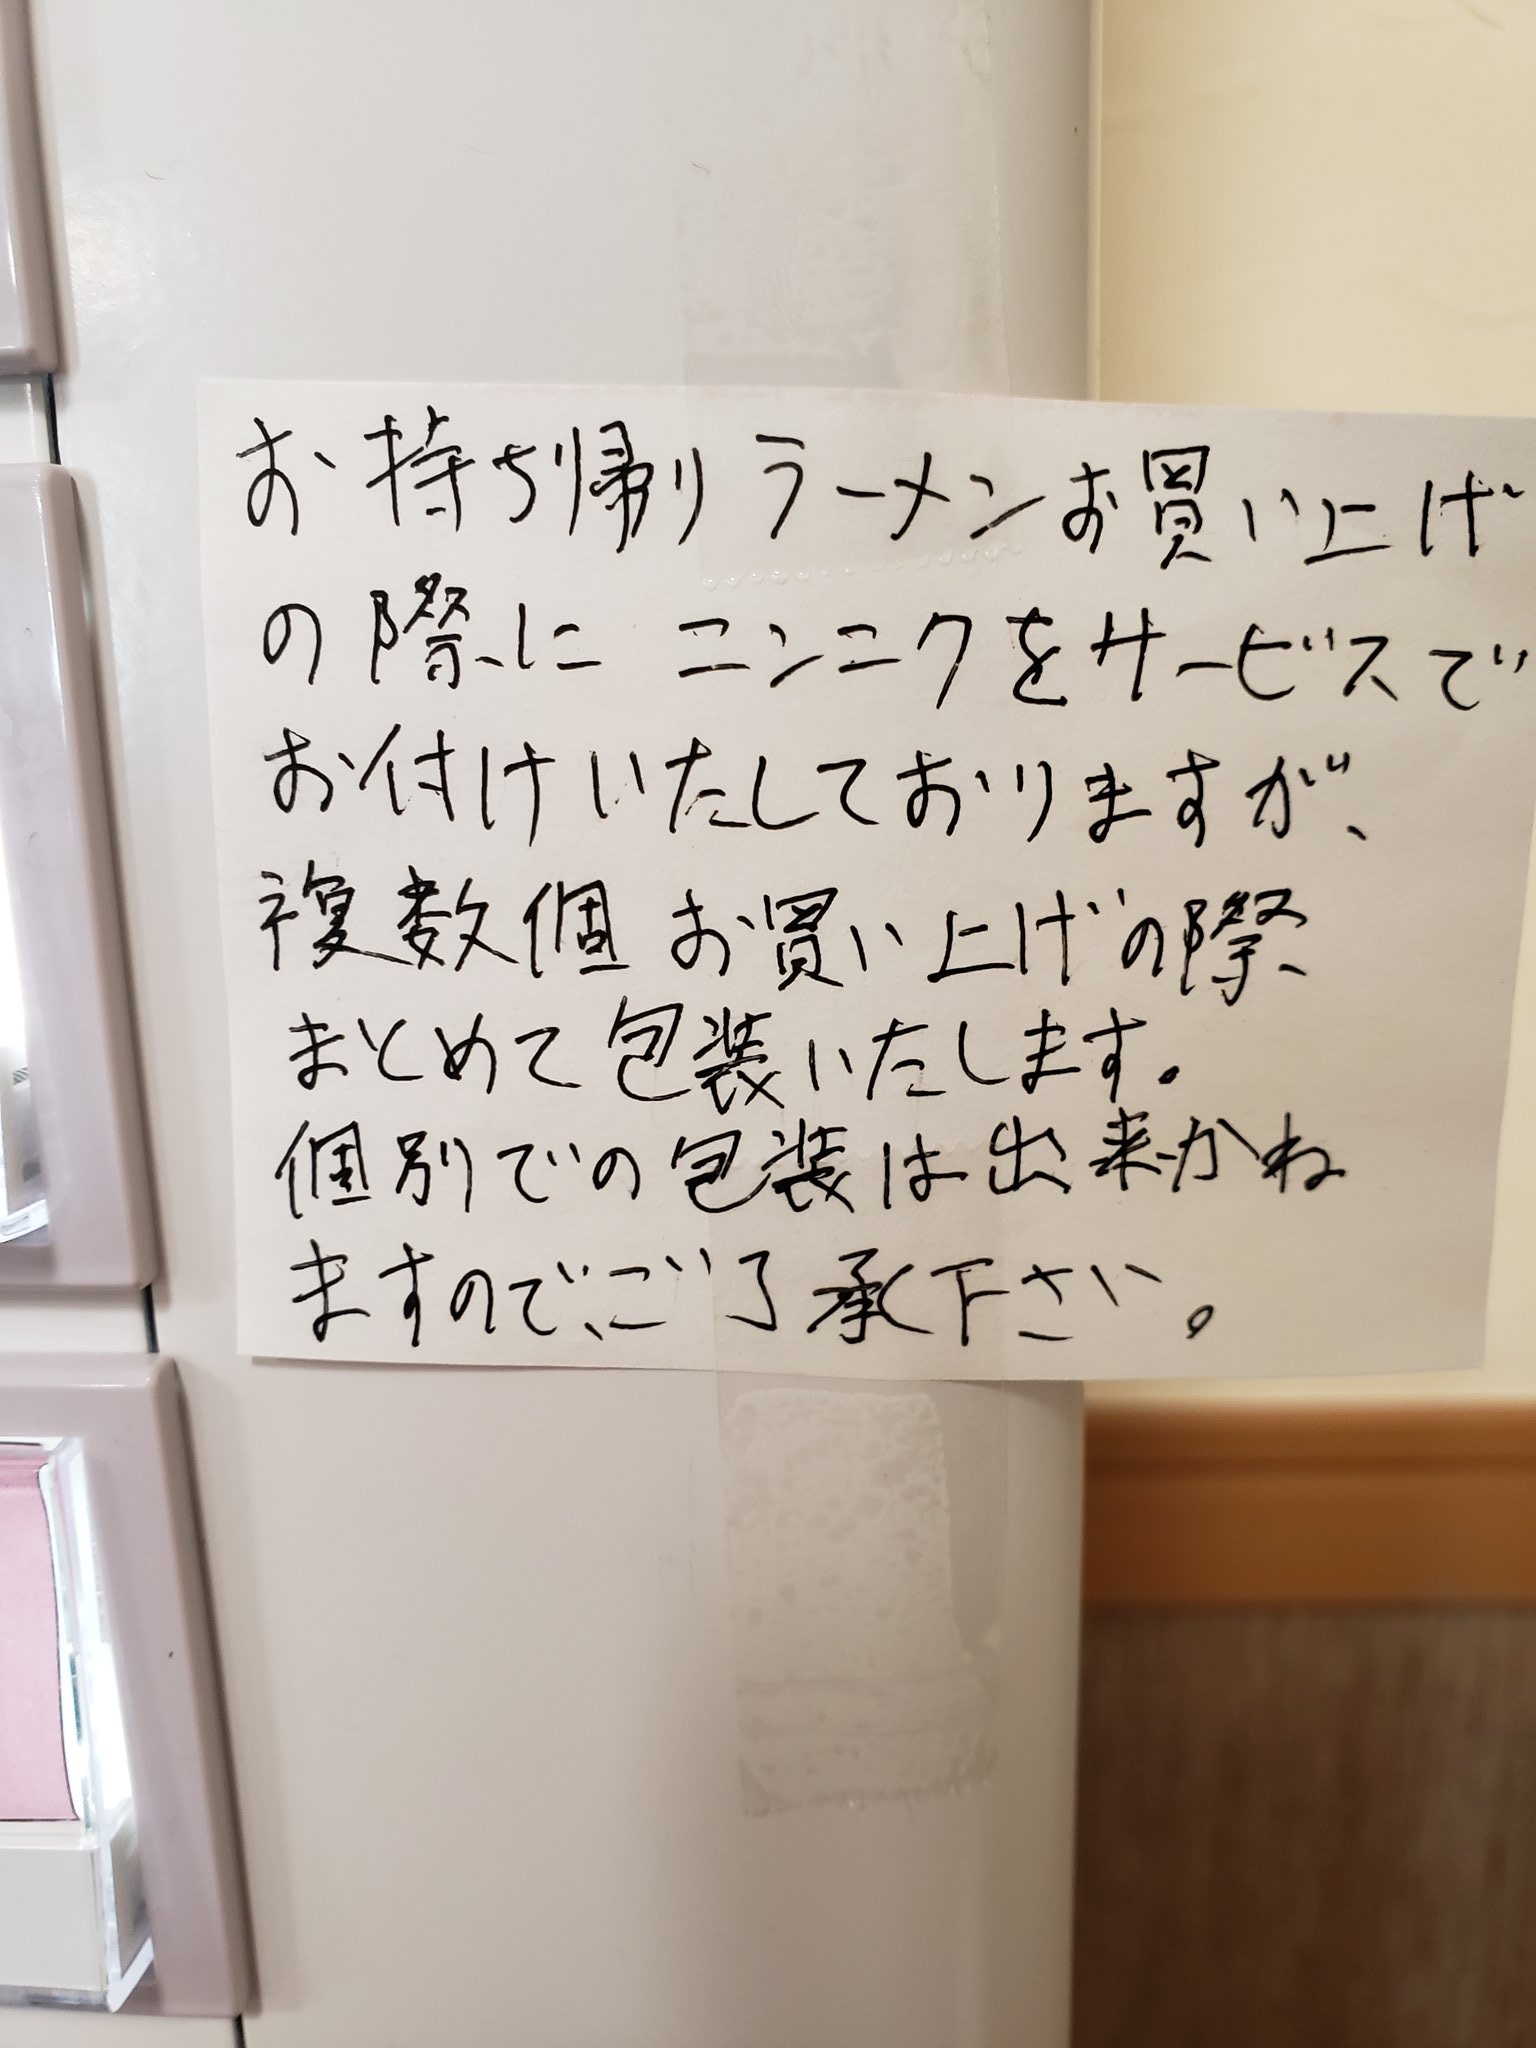 お持ち帰りラーメンお買い上げ
の際に ニンニクをサービスで
お付けいたしておりますが、
複数個 お買い上げの際、
まとめて包装いたします。
個別での包装は出来かね
ますので、ご了承下さい。